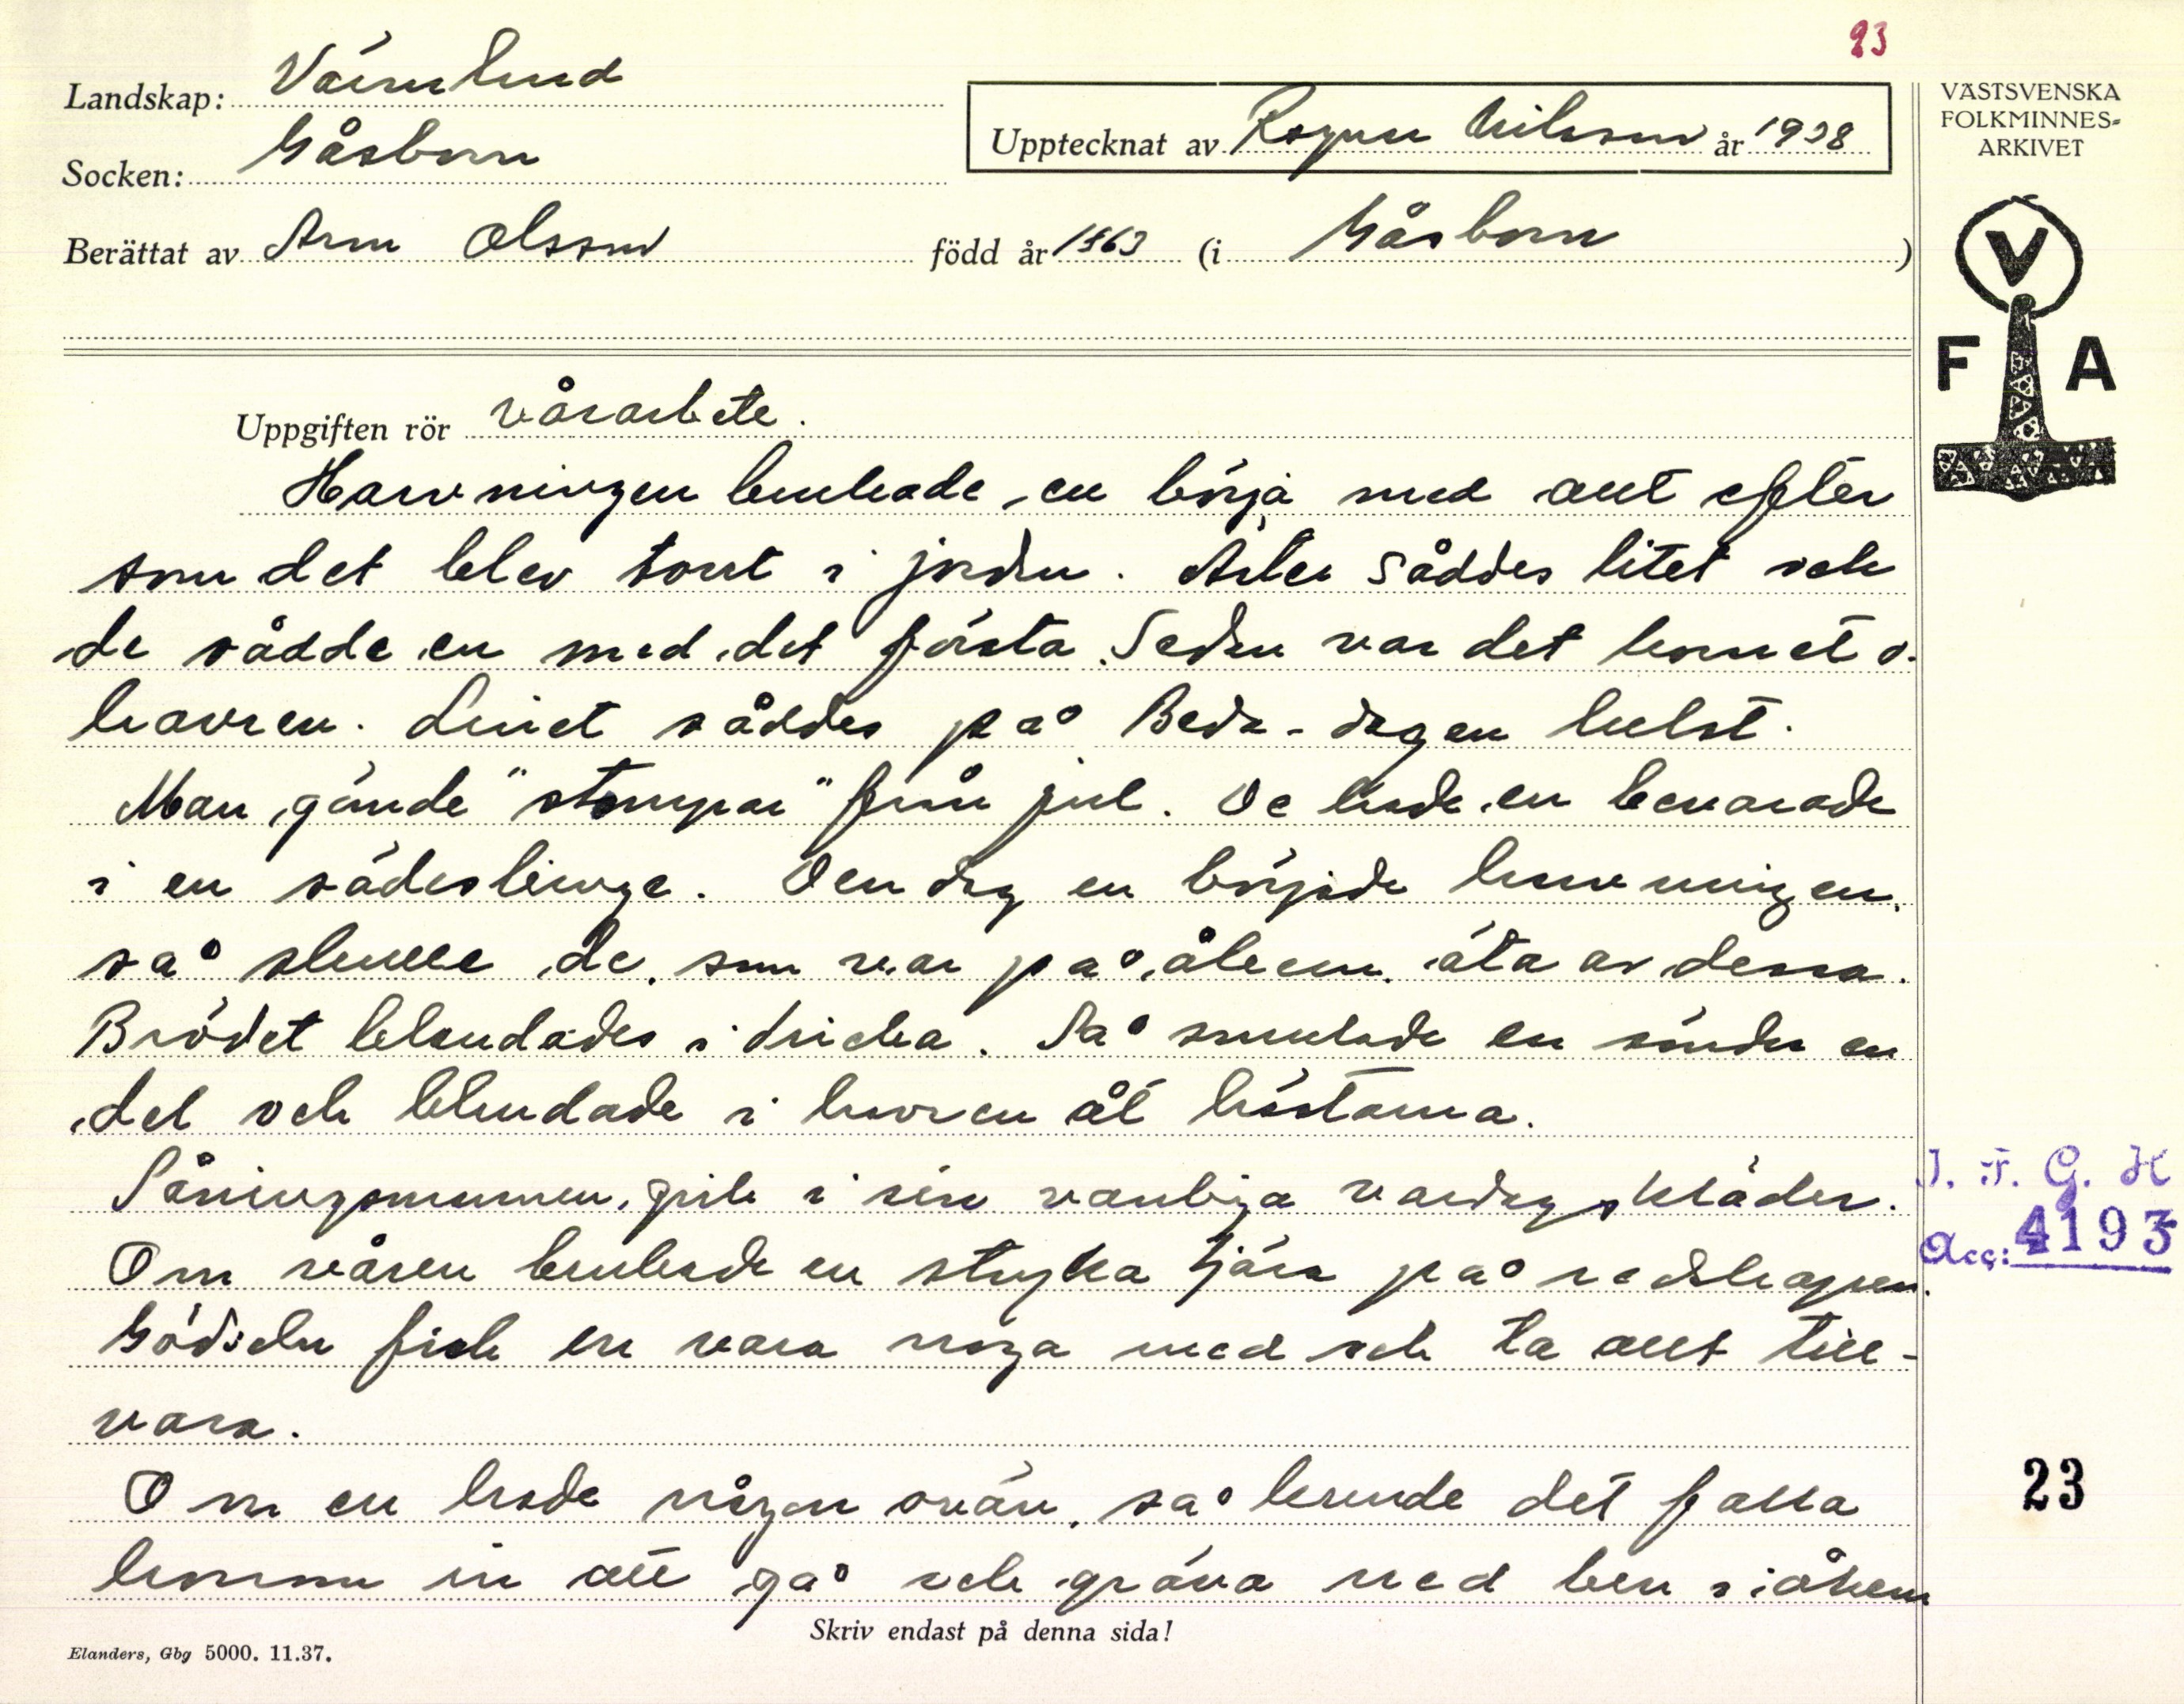 23
Landskap: Värmland
Socken: Gåsborn
Upptecknat av Ragnar Nilsson år 1938
Berättat av Arvi Olsson född år 1863 (i Gåsborn )
VÄSTSVENSKA
FOLKMINNES-
ARKIVET
V
F A
Uppgiften rör vårarbete.
Harvningen brukade en börja med allt efter
som det blev torrt i jorden. Ärter såddes litet och
de sådde en med det första. Sedan var det kornet o.
havren. Linet såddes på Beda-dagen helst.
Man gömde "stompar" från jul. De hade en bevarade
i en sädesbinge. Den dag en började harvningen,
så skulle de, som var på åkern, äta av dessa.
Brödet blandades i dricka. Så smulade en sönder en
del och blandade i havren åt hästarna.
Såningsmannen gick i sin vanliga vardagskläder.
Om våren brukade en stryka tjära på redskapen.
Gödseln fick en vara noga med och ta allt till-
vara.
Om en hade någon ovän, så kunde det falla
honom in att gå och gräva ned ben i åkern
I. F. G. H
Acc: 4193
23
Skriv endast på denna sida!
Elanders, Gbg 5000. 11.37.